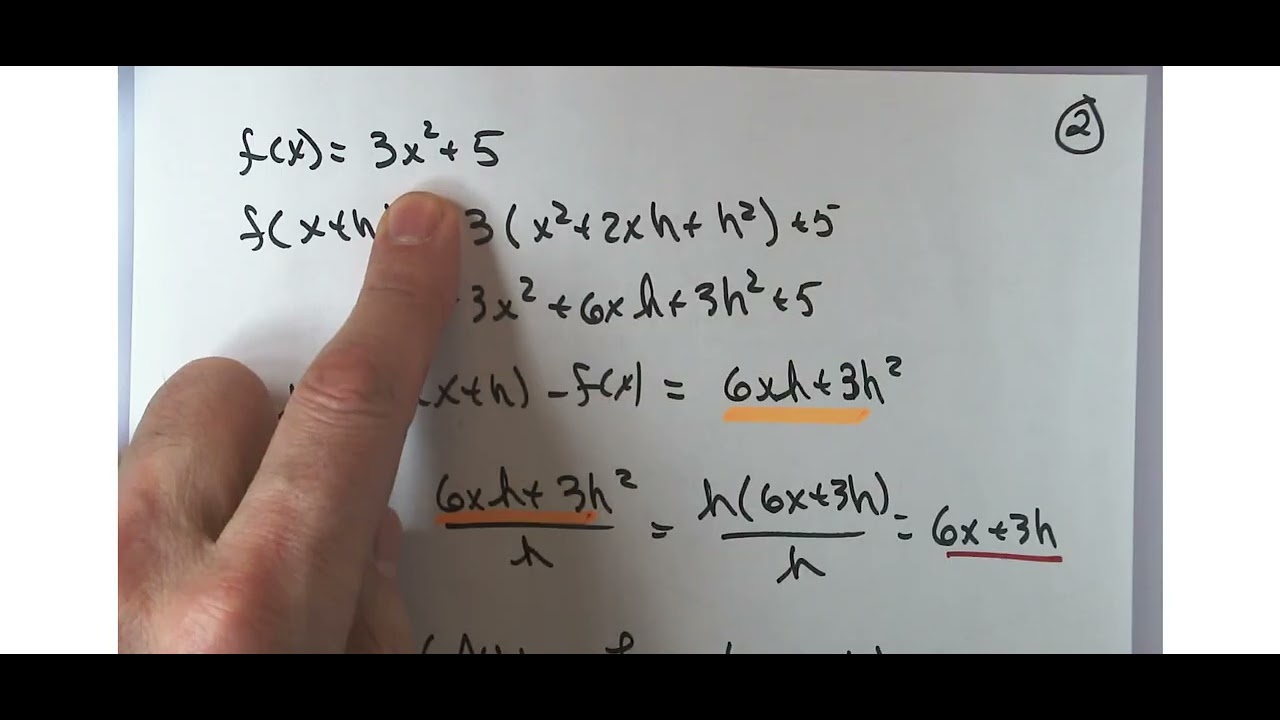 ②
f(x) = 3x² + 5
f(x+h) 3(x² + 2xh + h²) + 5
3x² + 6xh + 3h² + 5
(x+h) - f(x) = 6xh + 3h²
6xh + 3h² / h = h(6x+3h) / h = 6x + 3h